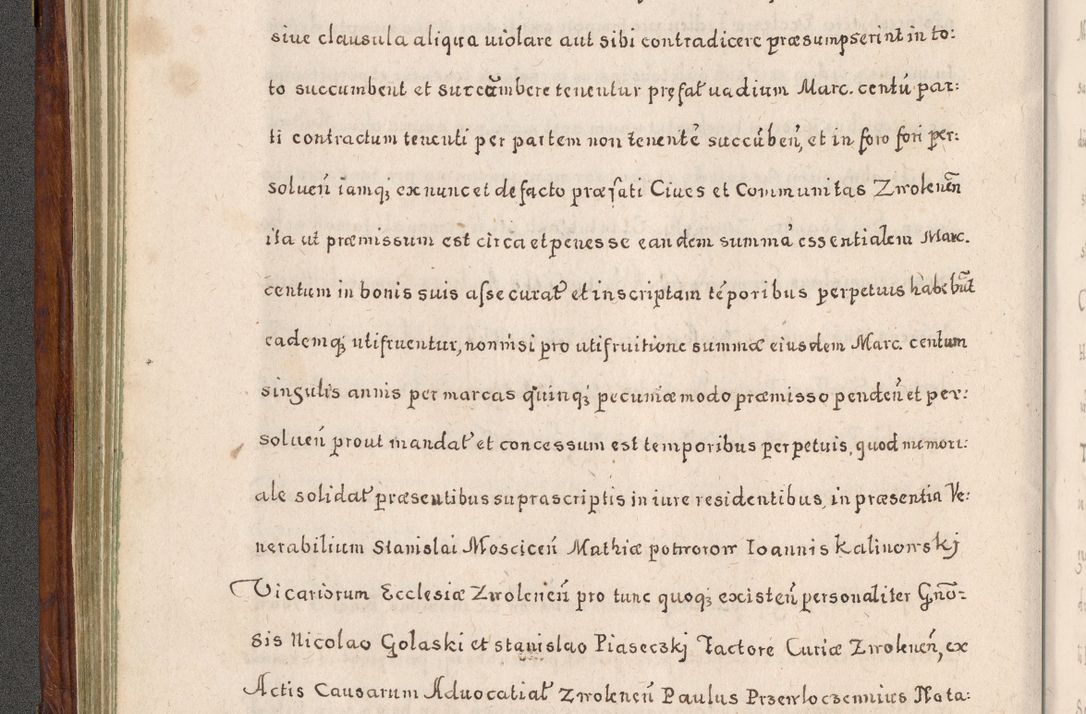 siue clausula aliqua uiolare aut sibi contradicere præsumpserint in to:
to succumbent et succumbere tenentur pręfat̃ uadium Marc. centũ par:
ti contractum tenenti per partem non tenentẽ succũbeñ, et in foro fori per:
solueñ iamq; ex nunc et de facto præfati Ciues et Communitas Zwolenẽn
ita ut præmissum est circa et penes se eandem summã essentialem Marc.
centum in bonis suis assecurat̃ et inscriptam tẽporibus perpetuis habebũt
eademq; utifruentur, non nisi pro utifruitione summæ eiusdem Marc. centum
singulis annis per marcas quinq; pecuniæ modo præmisso pendeñ et per:
solueñ prout mandat̃ et concessum est temporibus perpetuis, quod memori:
ale solidat̃ præsentibus suprascriptis in iure residentibus, in præsentia Ve:
nerabilium Stanislai Mosciceñ Mathiæ potworow Ioannis Kalinowskj
Vicariorum Ecclesiæ Zwoleneñ pro tunc quoq; existeñ personaliter Gño-
sis Nicolao Golaski et Stanislao Piaseczkj Factore Curiæ Zwoleneñ, ex
Actis Causarum Aduocatial̃ Zwoleneñ Paulus Przewloczennius Nota: